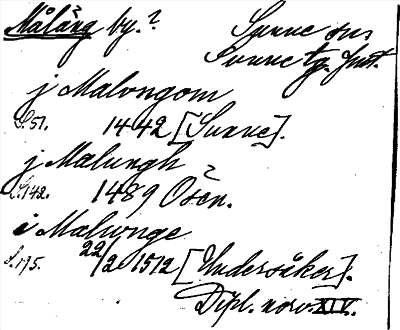 Målång by.? Sunne sn,
Sunne tg. Jmt.
j Malongom
S.51. 1442 [Sunne].
j Malungh
S.142. 1489 Ösen.
i Malunge
S.175. 22/2 1512 [Undersåker].
Dipl. norv. XIV.